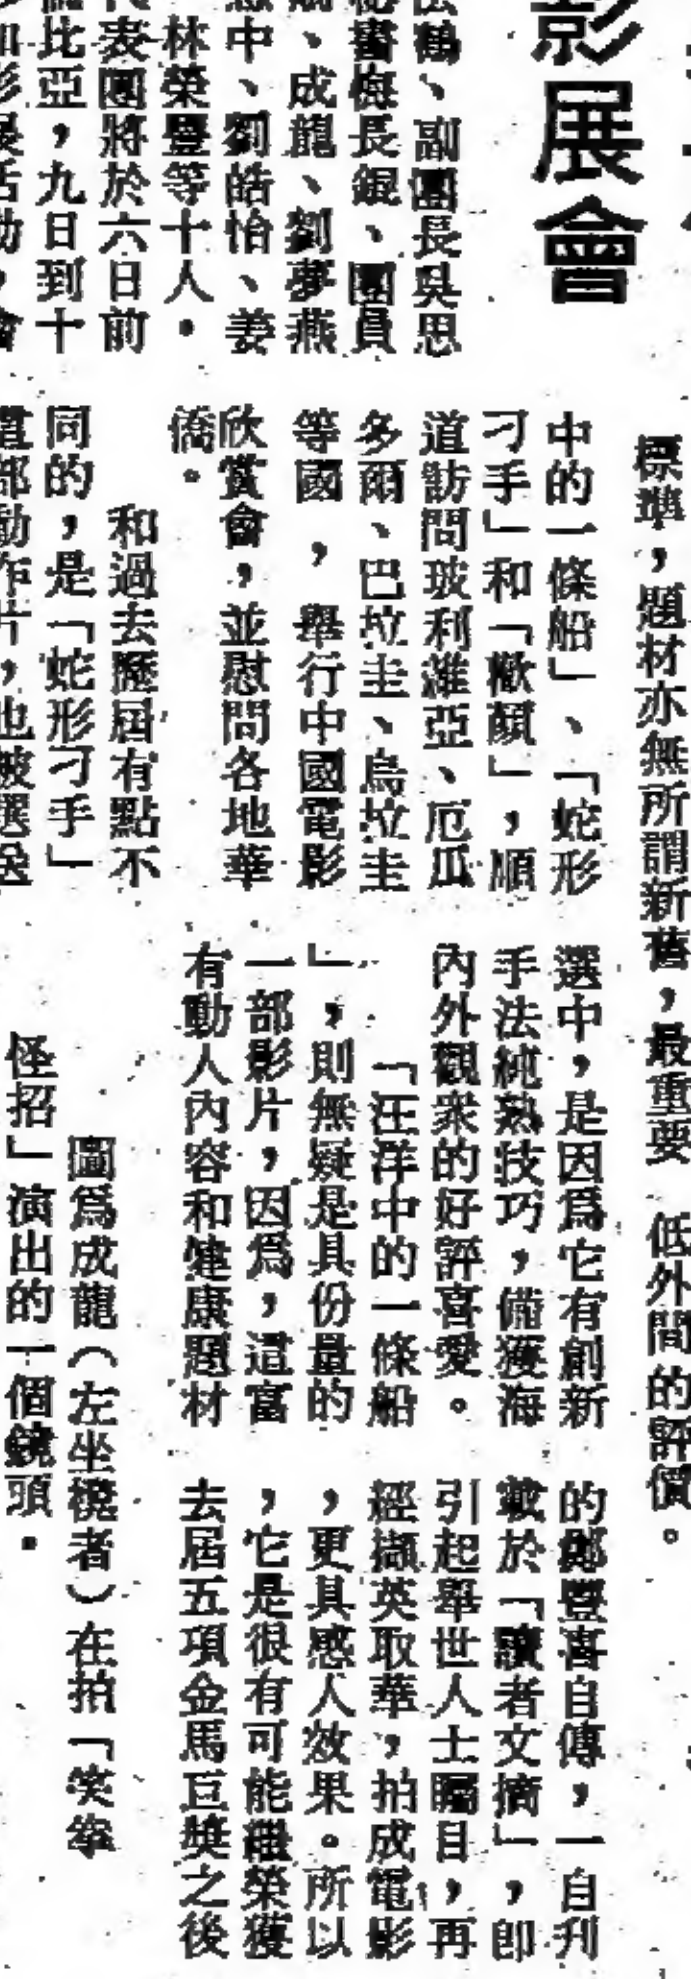 影展會
標準，題材亦無所謂新舊，最重要
低外間的評價。
法鶴、副團長吳思
秘書梅長錕、團員
、成龍、劉夢燕
中、劉皓怡、姜
林榮豐等十人。
代表團將於六日前
比亞，九日到十
中的一條船」、「蛇形
刁手」和「歡顏」，順
道訪問玻利維亞、厄瓜
多爾、巴拉圭、烏拉圭
等國，舉行中國電影
欣賞會，並慰問各地華
僑。
和過去歷屆有點不
同的，是「蛇形刁手」
這部動作片，也被選送
選中，是因爲它有創新
手法純熟技巧，備獲海
內外觀衆的好評喜愛。
「汪洋中的一條船
」，則無疑是具份量的
一部影片，因爲，這富
有動人內容和健康題材
的鄭豐喜自傳，一自刋
載於「讀者文摘」，卽
引起舉世人士矚目，再
經擷英取華，拍成電影
，更具感人效果。所以
，它是很有可能繼榮獲
去屆五項金馬巨獎之後
圖爲成龍（左坐櫈者）在拍「笑拳
怪招」演出的一個鏡頭。